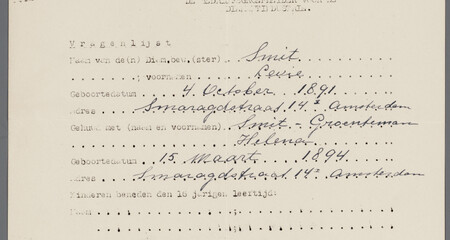 Vragenlijst
Naam van de(n) Diam.bew.(ster) Smit
; voornamen Levie
Geboortedatum 4 October 1891
Adres Smaragdstraat 14² Amsterdam
Gehuwd met (naam en voornamen) Smit - Groenteman
Helena
Geboortedatum 15 Maart 1894
Adres Smaragdstraat 14² Amsterdam
Kinderen beneden den 16 jarigen leeftijd:
Naam